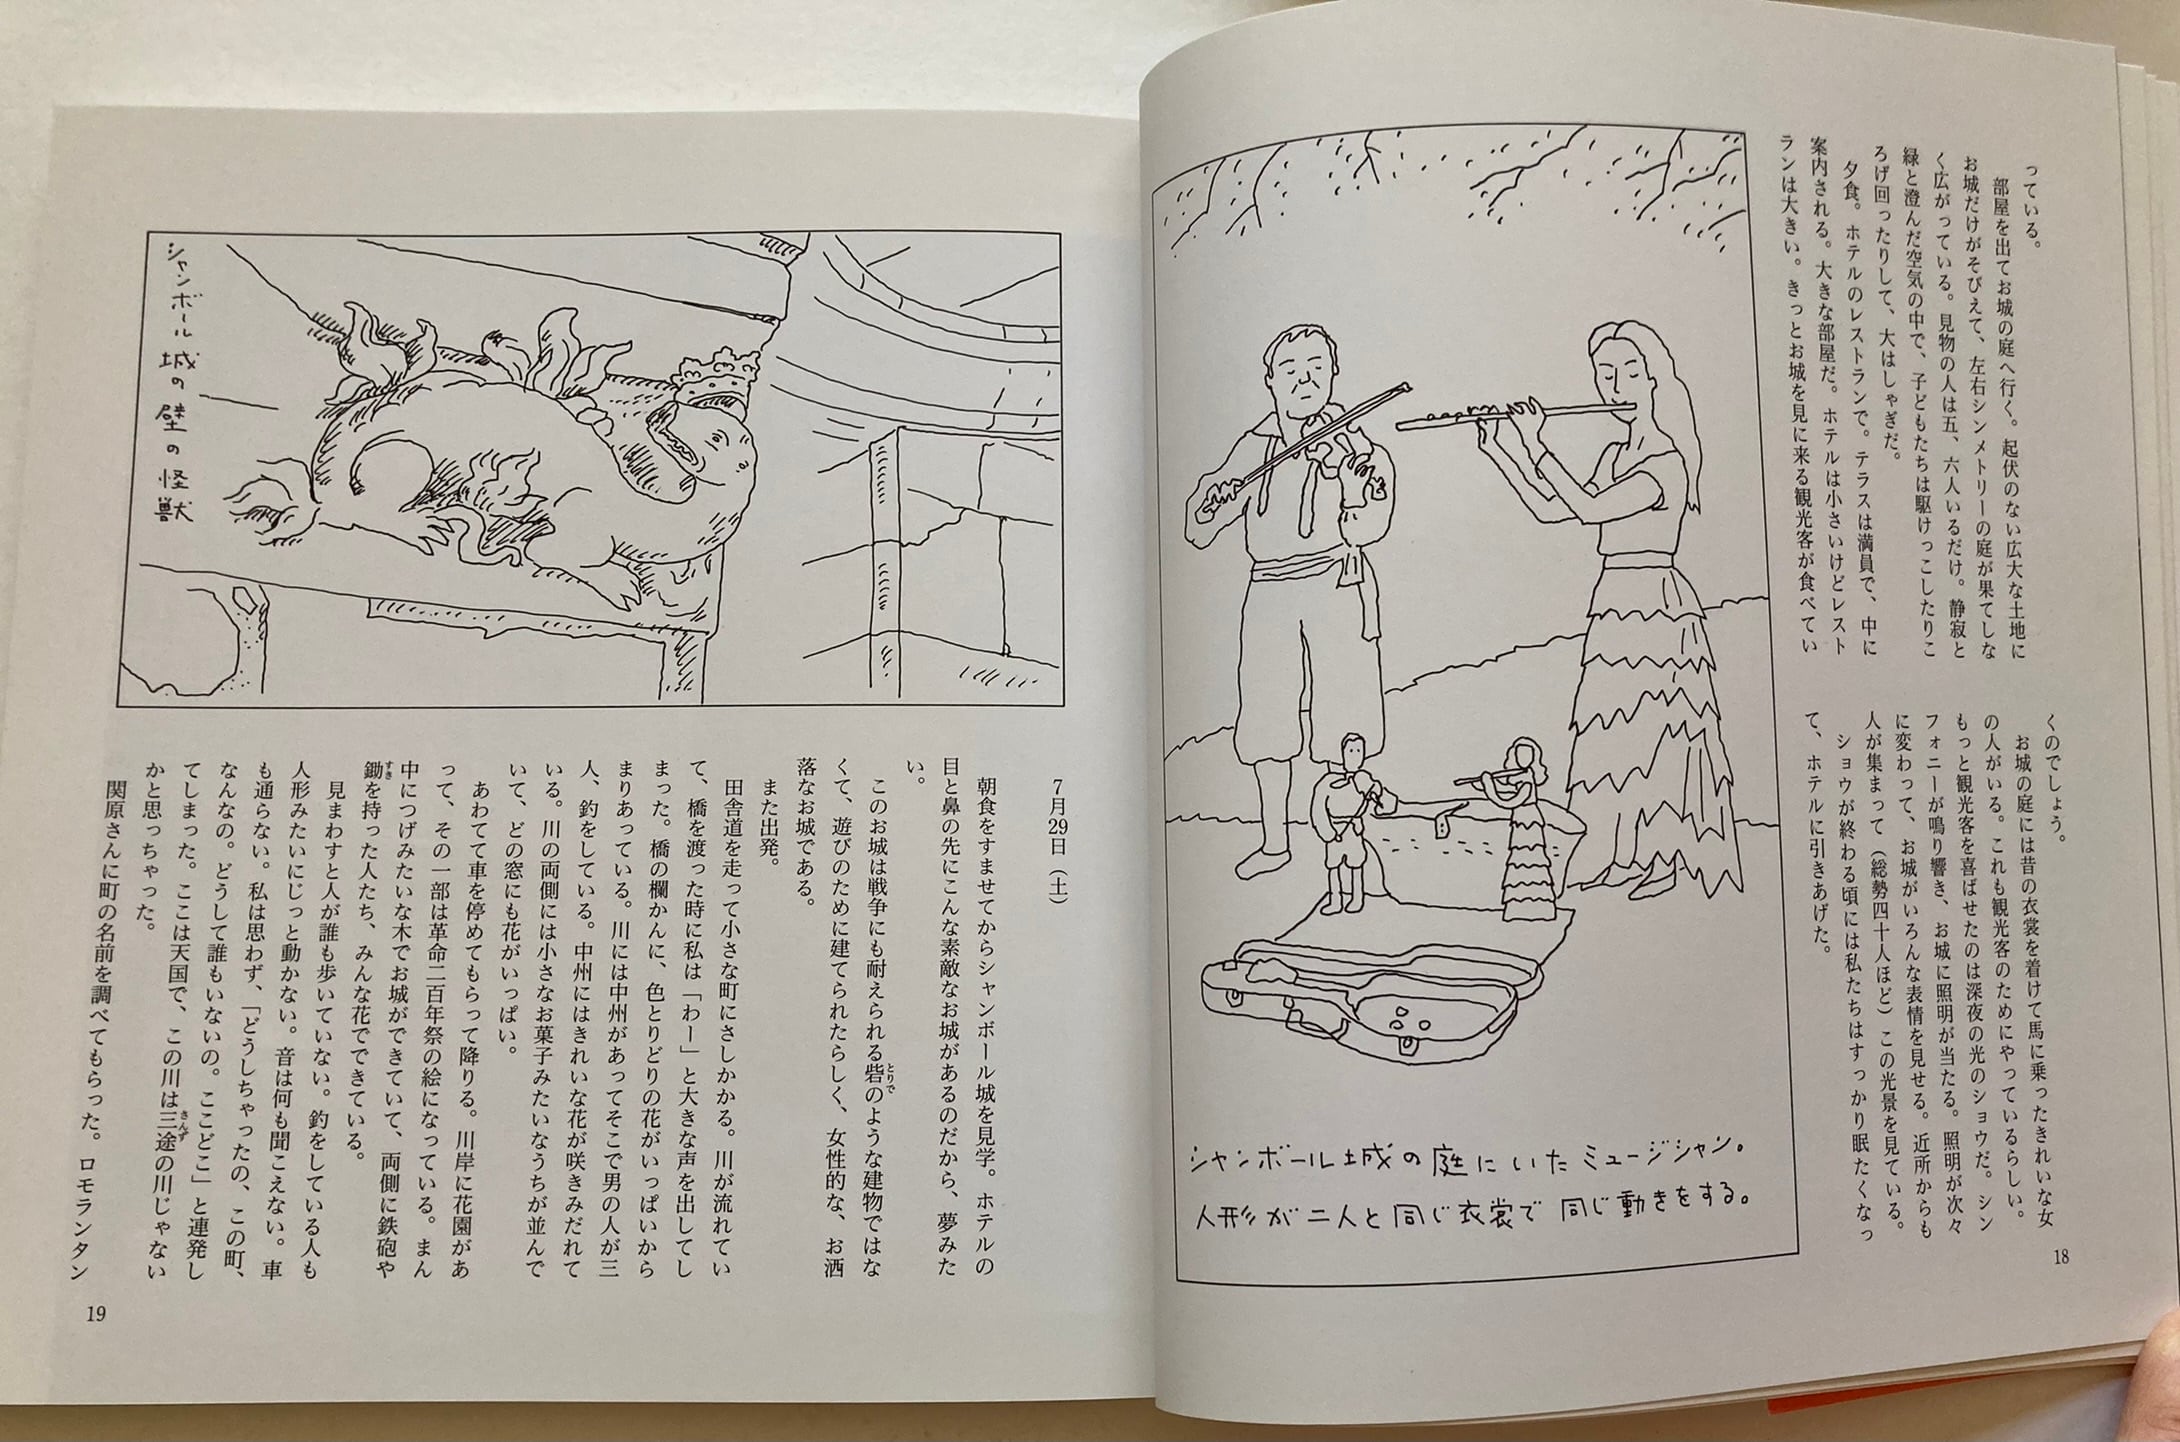 っている。
部屋を出てお城の庭へ行く。起伏のない広大な土地に
お城だけがそびえて、左右シンメトリーの庭が果てしな
く広がっている。見物の人は五、六人いるだけ。静寂と
緑と澄んだ空気の中で、子どもたちは駆けっこしたりこ
ろげ回ったりして、大はしゃぎだ。
夕食。ホテルのレストランで。テラスは満員で、中に
案内される。大きな部屋だ。ホテルは小さいけどレスト
ランは大きい。きっとお城を見に来る観光客が食べてい
くのでしょう。
お城の庭には昔の衣裳を着けて馬に乗ったきれいな女
の人がいる。これも観光客のためにやっているらしい。
もっと観光客を喜ばせたのは深夜の光のショウだ。シン
フォニーが鳴り響き、お城に照明が当たる。照明が次々
に変わって、お城がいろんな表情を見せる。近所からも
人が集まって（総勢四十人ほど）この光景を見ている。
ショウが終わる頃には私たちはすっかり眠たくなっ
て、ホテルに引きあげた。
シャンボール城の庭にいたミュージシャン。
人形が二人と同じ衣裳で同じ動きをする。
18
シャンボール城の壁の怪獣
7月29日（土）
朝食をすませてからシャンボール城を見学。ホテルの
目と鼻の先にこんな素敵なお城があるのだから、夢みた
い。
このお城は戦争にも耐えられる砦のような建物ではな
とりで
くて、遊びのために建てられたらしく、女性的な、お洒
落なお城である。
また出発。
田舎道を走って小さな町にさしかかる。川が流れてい
て、橋を渡った時に私は「わー」と大きな声を出してし
まった。橋の欄かんに、色とりどりの花がいっぱいから
まりあっている。川には中州があってそこで男の人が三
人、釣をしている。中州にはきれいな花が咲きみだれて
いる。川の両側には小さなお菓子みたいなうちが並んで
いて、どの窓にも花がいっぱい。
あわてて車を停めてもらって降りる。川岸に花園があ
って、その一部は革命二百年祭の絵になっている。まん
中につげみたいな木でお城ができていて、両側に鉄砲や
鋤を持った人たち、みんな花でできている。
すき
見まわすと人が誰も歩いていない。釣をしている人も
人形みたいにじっと動かない。音は何も聞こえない。車
も通らない。私は思わず、「どうしちゃったの、この町、
なんなの。どうして誰もいないの。ここどこ」と連発し
てしまった。ここは天国で、この川は三途の川じゃない
さんず
かと思っちゃった。
関原さんに町の名前を調べてもらった。ロモランタン
19